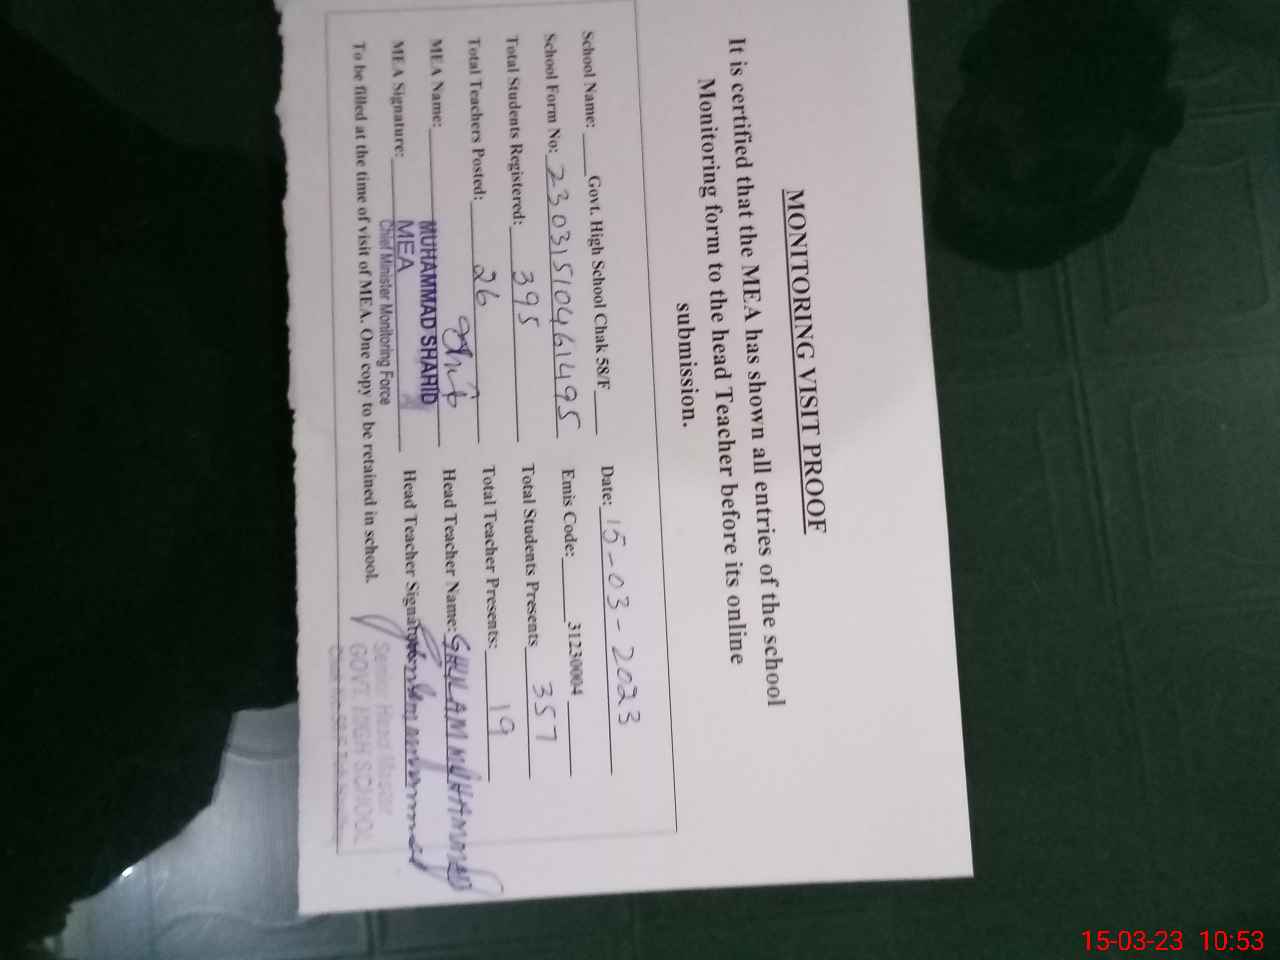 MONITORING VISIT PROOF
It is certified that the MEA has shown all entries of the school
Monitoring form to the head Teacher before its online
submission.
School Name: Govt. High School Chak 58/F Date: 15-03-2023
School Form No: 23031510461495 Emis Code: 31230004
Total Students Registered: 395 Total Students Presents 357
Total Teachers Posted: 26 Total Teacher Presents: 19
MEA Name: Head Teacher Name: GHULAM MUHAMMAD
MUHAMMAD SHAHID
MEA Signature: MEA Head Teacher Signature
Chief Minister Monitoring Force
To be filled at the time of visit of MEA. One copy to be retained in school.
Senior Head Master
GOVT. HIGH SCHOOL
15-03-23 10:53